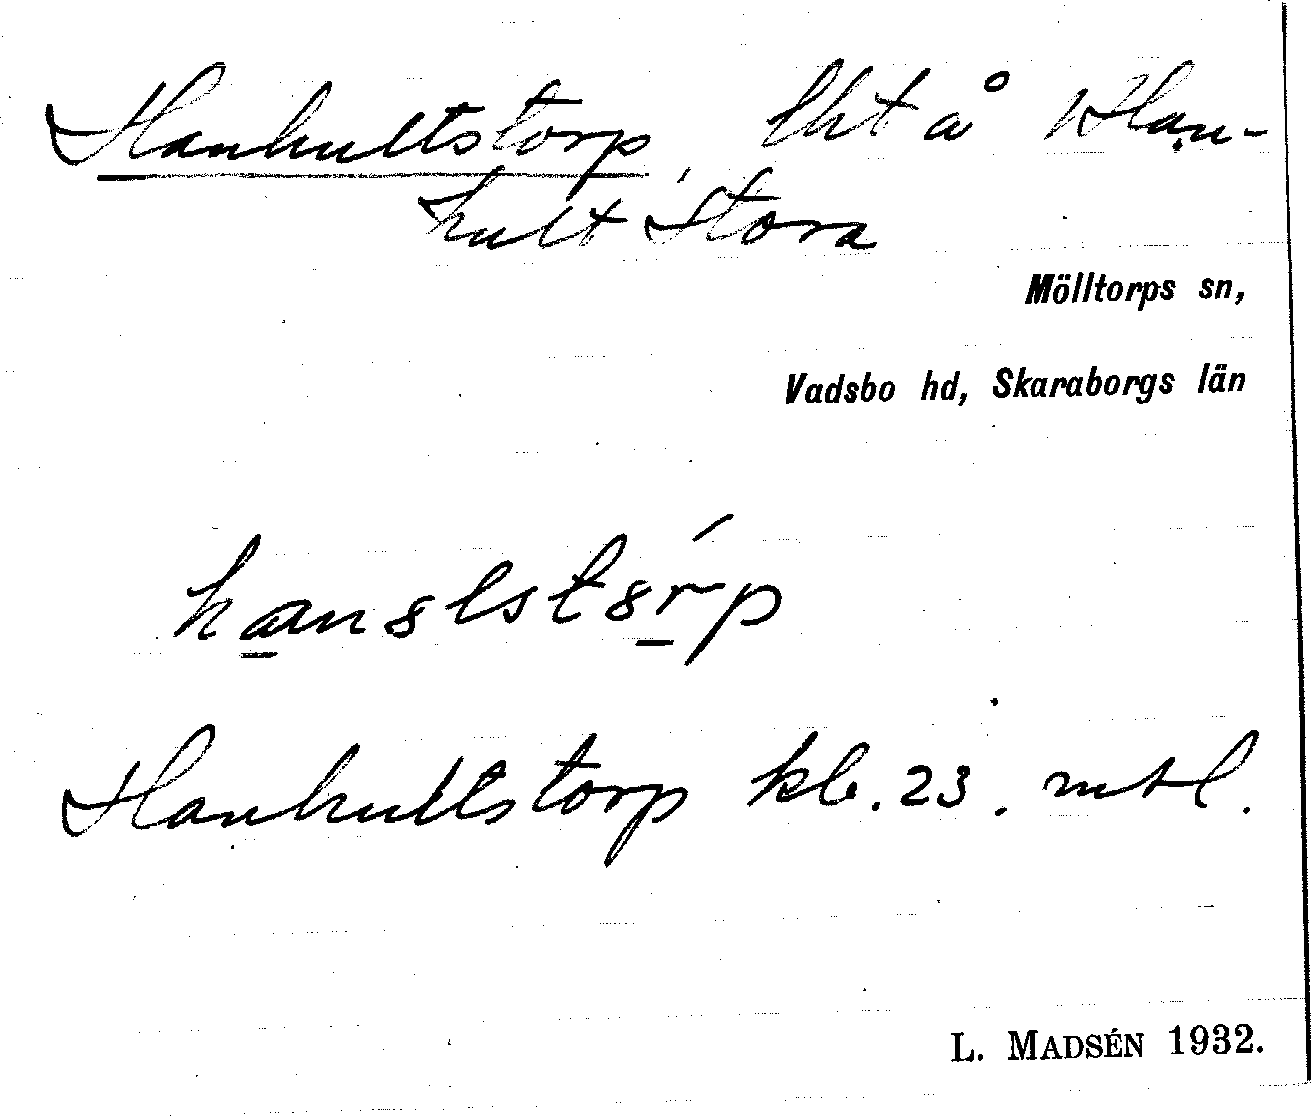 Hanhultstorp, lht å Han-
hult Stora
Mölltorps sn,
Vadsbo hd, Skaraborgs län
Hanhultstorp kb. 23. mtl.
L. MADSÉN 1932.